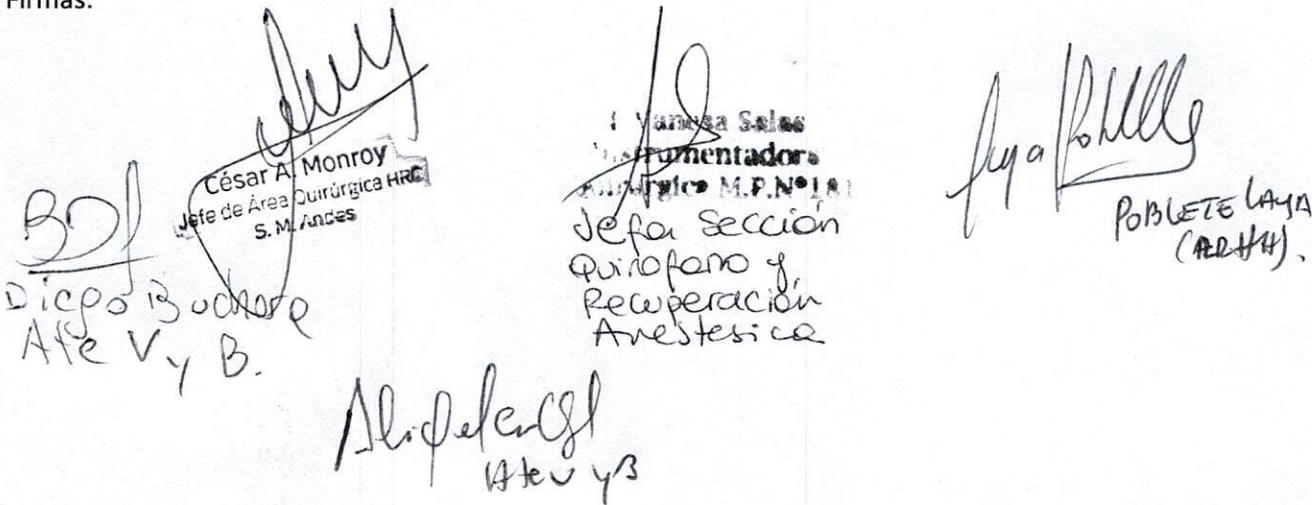 Firmas:
César A. Monroy
Jefe de Área Quirúrgica HRC
S. M. Andes
Diego
Ate V y B.
Vanesa Salas
Instrumentadora
M.P.Nº
Jefa Sección
Quirofano y
Recuperación
Anestesica
POBLETE LAYA
(RRHH).
Ate V y B